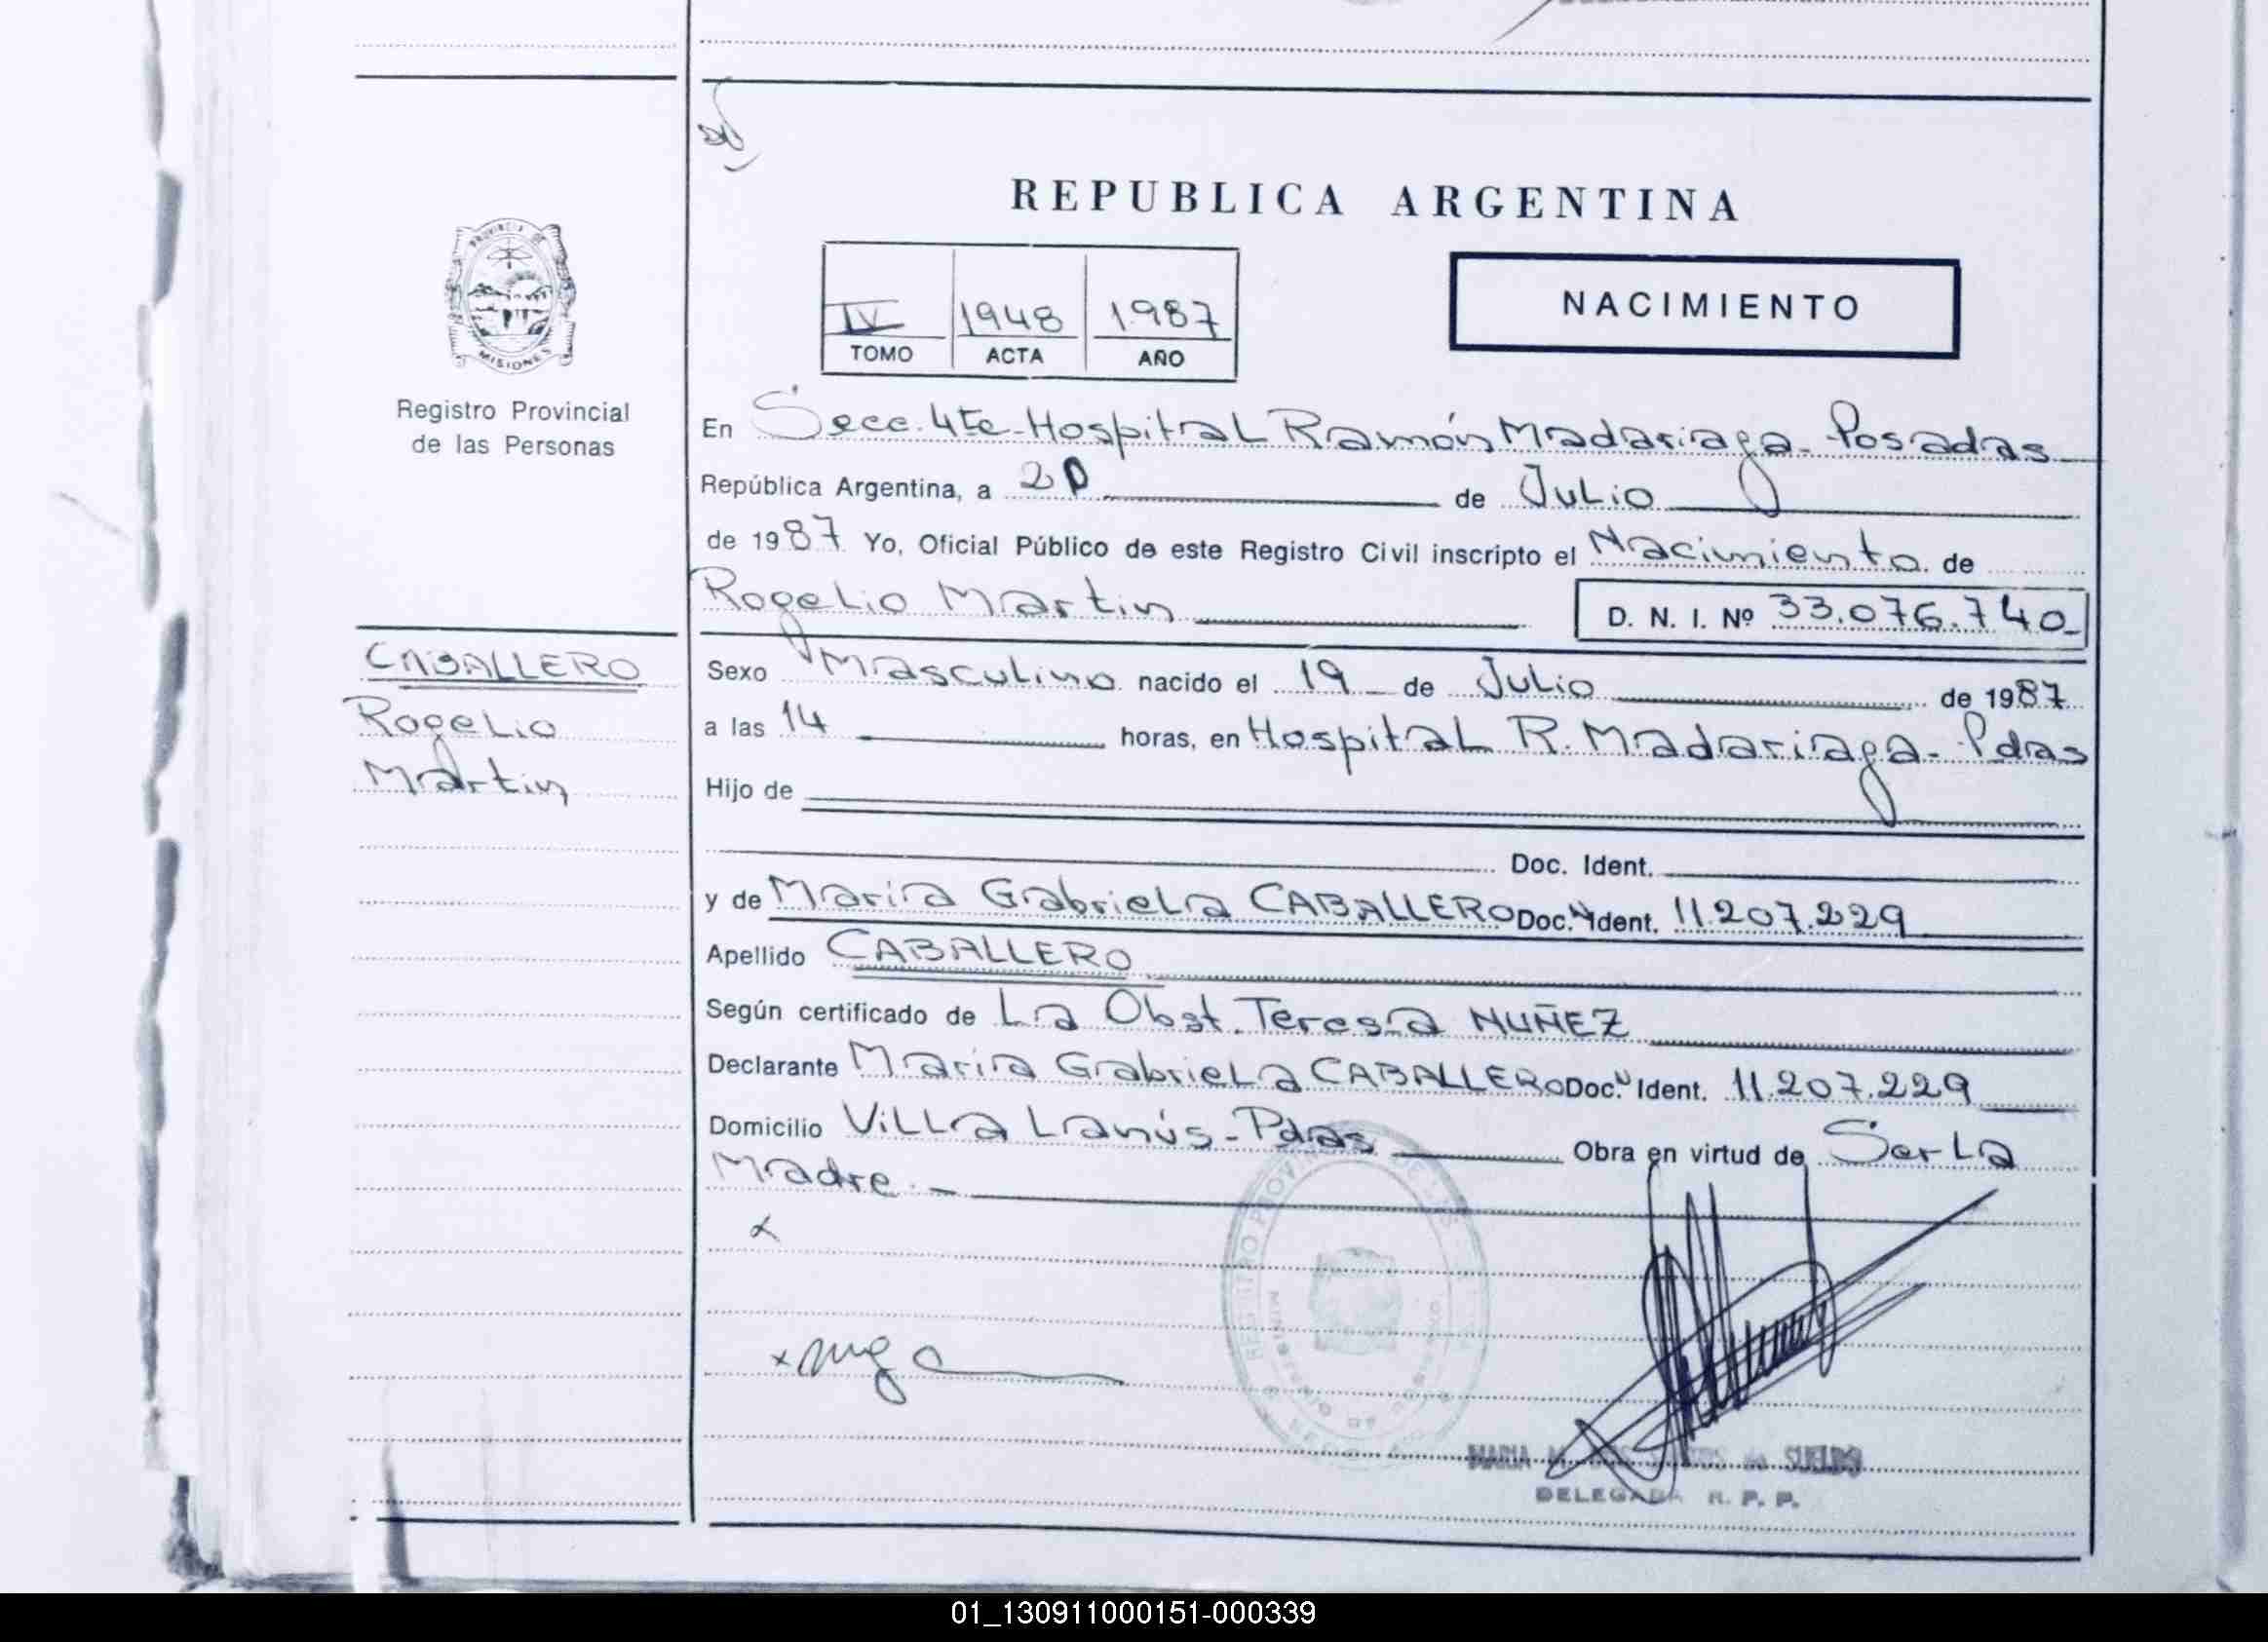 REPUBLICA ARGENTINA
PROVINCIA DE
MISIONES
Registro Provincial
de las Personas
IV 1948 1987
TOMO ACTA AÑO
NACIMIENTO
En Secc. 4te - Hospital Ramón Madariaga - Posadas
República Argentina, a 20 de Julio
de 1987 Yo, Oficial Público de este Registro Civil inscripto el Nacimiento de
Rogelio Martin D. N. I. Nº 33.076.740
CABALLERO
Rogelio
Martin
Sexo Masculino nacido el 19 de Julio de 1987
a las 14 horas, en Hospital R. Madariaga - Pdas
Hijo de
Doc. Ident.
y de Maria Gabriela CABALLERO Doc. Ident. 11.207.229
Apellido CABALLERO
Según certificado de La Obst. Teresa NUÑEZ
Declarante Maria Gabriela CABALLERO Doc. Ident. 11.207.229
Domicilio Villa Lanús - Pdas Obra en virtud de Ser La
Madre. -
REGISTRO PROVINCIAL DE LAS
MINISTERIO DE GOBIERNO
MARIA SUELDO
DELEGADA R. P. P.
01_130911000151-000339